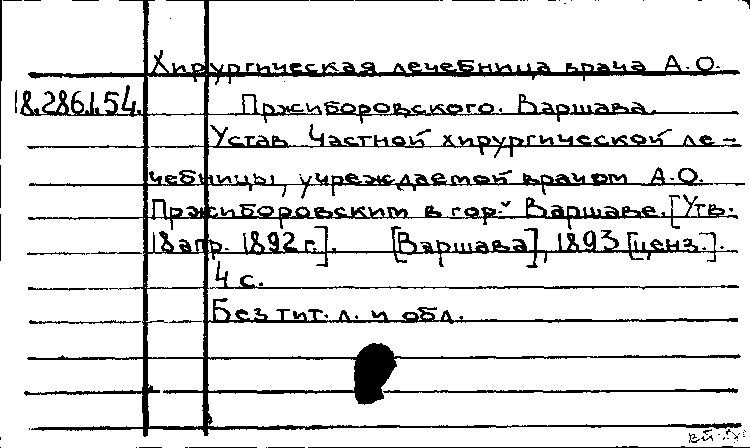 Хирургическая лечебница врача А.О.
18.286.1.54. Пржиборовского. Варшава.
Устав Частной хирургической ле-
чебницы, учреждаемой врачом А.О.
Пржиборовским в гор. Варшаве. [Утв.
18 апр. 1892 г.]. [Варшава], 1893 [ценз.].
4 с.
Без тит. л. и обл.